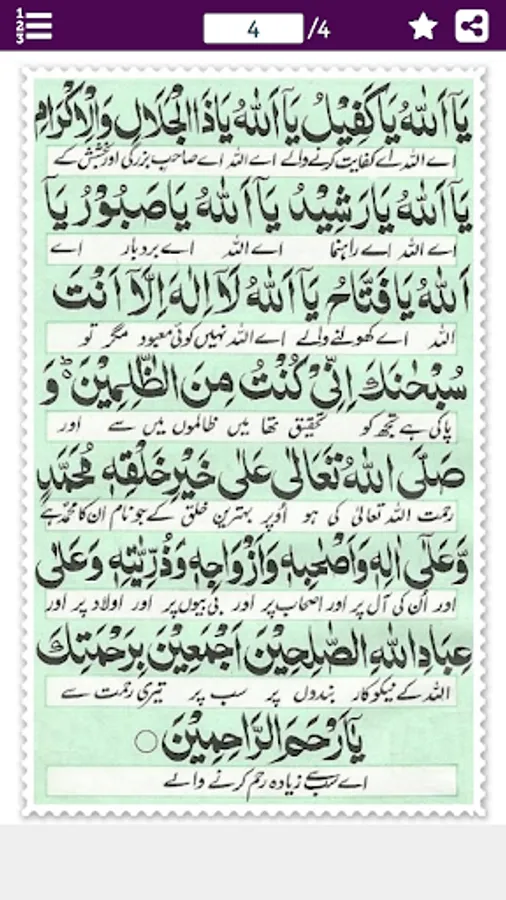 1
2
3
4 /4
یَآ اَللّٰهُ یَا کَفِیْلُ یَآ اَللّٰهُ یَا ذَا الْجَلَالِ وَالْاِکْرَامِ
اے اللہ اے کفایت کرنے والے اے اللہ اے صاحب بزرگی اور بخشش کے
یَآ اَللّٰهُ یَا رَشِیْدُ یَآ اَللّٰهُ یَا صَبُوْرُ یَآ
اے اللہ اے راہنما اے اللہ اے بردبار اے
اَللّٰهُ یَا فَتَّاحُ یَآ اَللّٰهُ لَآ اِلٰهَ اِلَّآ اَنْتَ
اللہ اے کھولنے والے اے اللہ نہیں کوئی معبود مگر تو
سُبْحٰنَكَ اِنِّیْ كُنْتُ مِنَ الظّٰلِمِیْنَ ؕ وَ
پاکی ہے تجھ کو تحقیق تھا میں ظالموں میں سے اور
صَلَّی اللّٰهُ تَعَالٰی عَلٰی خَیْرِ خَلْقِهٖ مُحَمَّدٍ
رحمت اللہ تعالی کی ہو اوپر بہترین خلق کے جو نام ان کا محمدؐ ہے
وَّعَلٰٓی اٰلِهٖ وَاَصْحٰبِهٖ وَاَزْوَاجِهٖ وَذُرِّیّٰتِهٖ وَعَلٰی
اور اُن کی آل پر اور اصحاب پر اور بی بیوں پر اور اولاد پر اور
عِبَادِ اللّٰهِ الصّٰلِحِیْنَ اَجْمَعِیْنَ بِرَحْمَتِكَ
اللہ کے نیکوکار بندوں پر سب پر تیری رحمت سے
یَآ اَرْحَمَ الرَّاحِمِیْنَ ○
اے سب سے زیادہ رحم کرنے والے